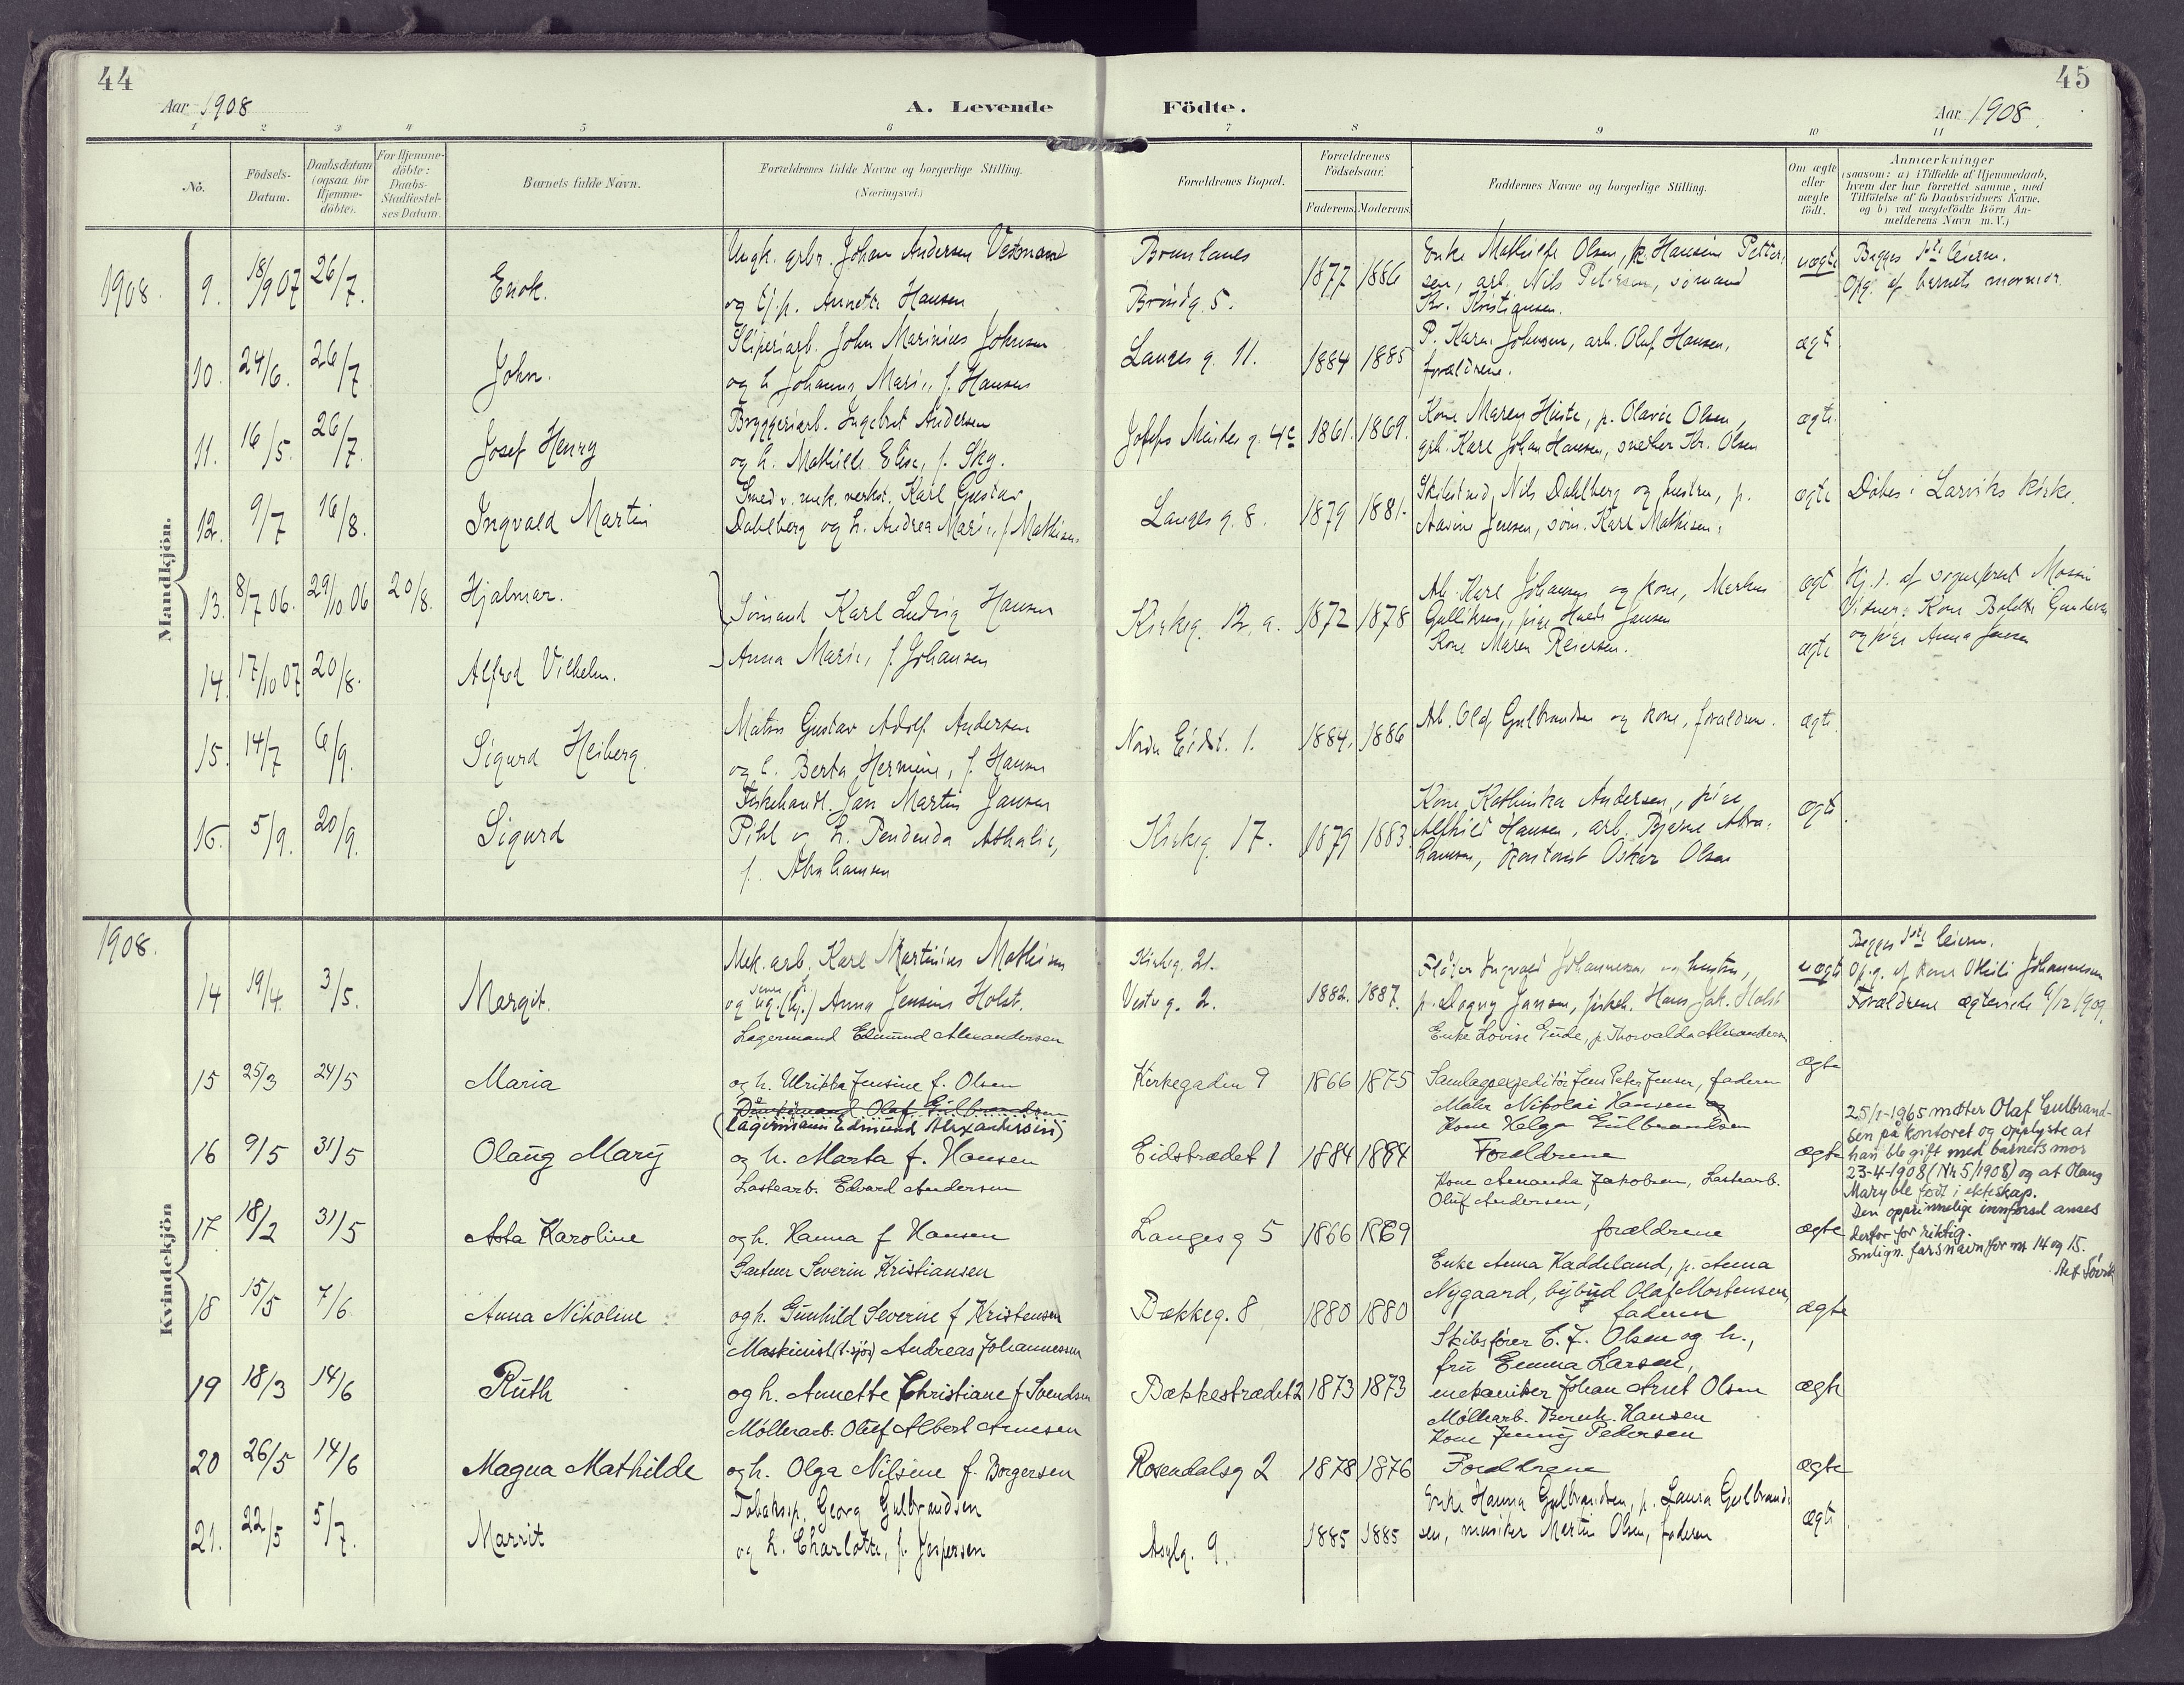 44
Aar 1908
A. Levende
Födte.
Aar 1908.
45
1 2 3 4 5 6 7 8 9 10 11
Nö.
Födsels-Datum.
Daabsdatum (ogsaa for Hjemme-döbte).
For Hjemme-döbte: Daabs-Stadfæstel-ses Datum.
Barnets fulde Navn.
Forældrenes fulde Navne og borgerlige Stilling. (Næringsvei.)
Forældrenes Bopæl.
Forældrenes Födselsaar.
Faderens. Moderens.
Faddernes Navne og borgerlige Stilling.
Om ægte eller uægte födt.
Anmærkninger
(saasom: a) i Tilfælde af Hjemmedaab,
hvem der har forrettet samme, med
Tilföielse af to Daabsvidners Navne,
og b) ved uægtefödte Börn An-
melderens Navn m.V.)
Mandkjön.
1908. 9. 18/9 07 26/7. Enok.
Ungk. grbr. Johan Andersen Vestmand
og Ej. p. Annette Hansen
Brunlanes
Bröndg. 5.
1877 1886
Enke Mathilde Olsen, p. Hansine Petter-
sen, arb. Nils Petersen, sömand
Kr. Kristiansen.
uægte
Begges 1ste leierm.
Opg. af barnets mormor.
10. 24/6. 26/7. John.
Sliperiarb. John Marinius Johnsen
og h. Johanne Marie, f. Hansen
Langes g. 11. 1884 1885
P. Karen Johnsen, arb. Oluf Hansen,
forældrene.
ægte
11. 16/5. 26/7. Josef Henry
Bryggeriarb. Ingebret Andersen
og h. Mathilde Elise, f. Sky.
Josefs Mindes g. 4c 1861. 1869.
Kone Maren Hinste, p. Olavie Olsen,
grb. Karl Johan Hansen, snekker Kr. Olsen
ægte.
12. 9/7 16/8. Ingvald Martin
Smed v. mek. verkst. Karl Gustav
Dahlberg og h. Andrea Marie, f. Mathisen.
Langes g. 8. 1879 1881.
Skibstmd. Nils Dahlberg og hustru, p.
Aasine Jensen, söm. Karl Mathisen.
ægte Döbes i Larviks kirke.
13. 8/7 06. 29/10 06 20/8. Hjalmar.
Sömand Karl Ludvig Hansen
Anna Marie, f. Johansen
Kirkeg. 12, a. 1872 1878
Arb. Karl Johansen og kone, Markus
Gulliksen, pige Hulda Jansen
Kone Maren Reiersen.
ægte
ægte
Hj. d. af sogneprest Mossin
Vidner: Kone Bolette Gundersen
og pige Anna Jansen
14. 17/10 07 20/8. Alfred Vilhelm.
15. 14/7 6/9. Sigurd Heiberg
Matros Gustav Adolf Andersen
og h. Berta Hermine, f. Hansen
Nedre Eidst. 1. 1884. 1886
Arb. Oluf Gulbrandsen og kone, forældrene.
ægte
16. 5/9. 20/9. Sigurd
Fiskehandl. Jan Martin Jansen
Pihl og h. Pendenda Athalie,
f. Abrahamsen
Kirkeg. 17. 1879 1883.
Kone Kathinka Andersen, pige
Alfhild Hansen, arb. Bjarne Abra-
hamsen, kontorist Oskar Olsen
ægte
Kvindekjön
1908.
14 19/4. 3/5. Margit.
Mek. arb. Karl Martinius Mathisen
og Anna Jensine Holst.
Kirkeg. 21.
Vestre g. 2.
1882. 1887.
Fløter Ingvald Johannesen og hustru,
p. Dagny Jansen, fiskeh. Hans Jak. Holst
uægte
Begges 1ste leierm.
Opg. af kone Othili Johannesen
Forældrene ægteviede 6/12 1909.
15 25/3 24/5 Maria
Lagermand Edmund Alexandersen
og h. Ulrikka Jensine f. Olsen
Kirkegaden 9 1866 1875
Enke Lovise Gude, p. Thorvalda Alexandersen
Samlagsexpeditör Jens Peter Jensen, faderen
ægte
16 9/5 31/5 Olaug Mary
Olaf Gulbrandsen
(Lagermann Edmund Alexandersen)
og h. Marta f. Hansen
Eidstrædet 1 1884 1884
Maler Nikolai Hansen og
Kone Helga Gulbrandsen
Forældrene
ægte
25/1-1965 møter Olaf Gulbrand-
sen på kontoret og opplyste at
han ble gift med barnets mor
23-4-1908 (Nr 5/1908) og at Olaug
Mary ble født i ekteskap.
Den opprinnelige innførsel anses
derfor for riktig.
Smlign. farsnavn for nr 14 og 15.
17 18/2 31/5 Asta Karoline
Lastearb. Edvard Andersen
og h. Hanna f Hansen
Langes g 5 1866 1869
Kone Amanda Jakobsen, Lastearb.
Oluf Andersen,
forældrene
ægte
18 15/5 7/6 Anna Nikoline
Gartner Severin Kristiansen
og h. Gunhild Severine f Kristensen
Bækkeg. 8 1880 1880
Enke Anna Haddeland, p. Anna
Nygaard, bybud Olaf Mortensen,
faderen
ægte
19 18/3 14/6 Ruth
Maskinist (t. sjös) Andreas Johannessen
og h. Annette Christiane f Svendsen
Bækkestrædet 2 1873 1873
Skibsförer C. F. Olsen og h.,
fru Emma Larsen,
mekaniker Johan Arnt Olsen
ægte
20 26/5 14/6 Magna Mathilde
Möllerarb. Oluf Albert Arnesen
og h. Olga Nilsine f. Borgersen
Rosendalsg 2 1878 1876
Möllearb. Bernh. Hansen
Kone Jenny Pedersen
Forældrene
ægte
21. 22/5 5/7. Marrit
Tobaksp. Georg Gulbrandsen
og h. Charlotte, f. Jespersen
Asylg. 9. 1885 1885
Enke Hanna Gulbrandsen, p. Laura Gulbrand-
sen, musiker Martin Olsen, faderen
ægte